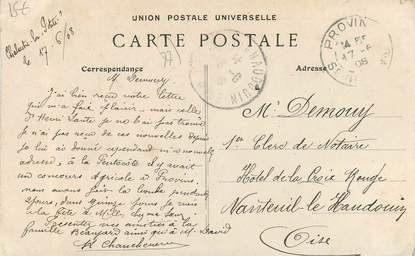 15€
le 17/6/08
UNION POSTALE UNIVERSELLE
CARTE POSTALE
Correspondance
Adresse
PROVINS
17 -6
08
M. Demouy
J'ai bien reçu votre lettre
qui m'a fait plaisir, mais celle
je ne l'ai pas trouvé
Je n'ai pas reçu de ces nouvelles depuis
Je lui ai donné cependant ma nouvelle
adresse, à la Pentecôte il y avait
un concours Agricole à Provins
nous avons fait la bombe pendant
2 jours, dans quinze jours je vais
à la fête à
Présentez mes amitiés à la
famille Beaujard ainsi qu'à M. David
Mr Demouy
1er Clerc de Notaire
Hotel de la Croix Rouge
Nanteuil-le Haudouin
Oise